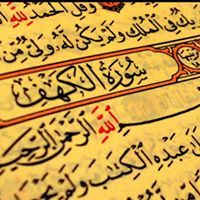 وَقُلِ ٱلْحَمْدُ لِلَّهِ
يكٌ فِى ٱلْمُلْكِ وَلَمْ يَكُن لَّهُۥ وَلِىٌّ مِّنَ
سُورَةُ الكَهْفِ
ٱللَّهِ ٱلرَّحْمَٰنِ ٱلرَّحِيمِ
عَبْدِهِ ٱلْكِتَٰبَ وَلَمْ يَجْعَل